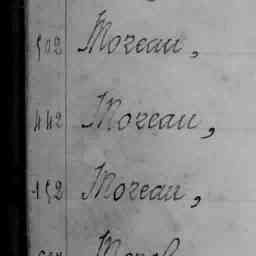 502 Moreau,
442 Moreau,
152 Moreau,